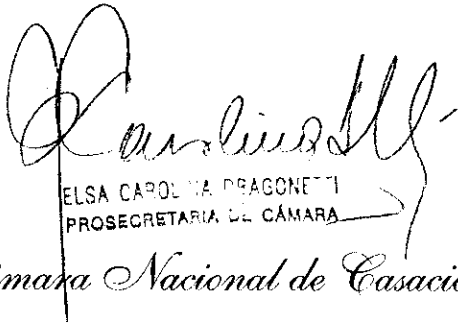 ELSA CAROLINA DRAGONETTI
PROSECRETARIA DE CÁMARA
mara Nacional de Casació